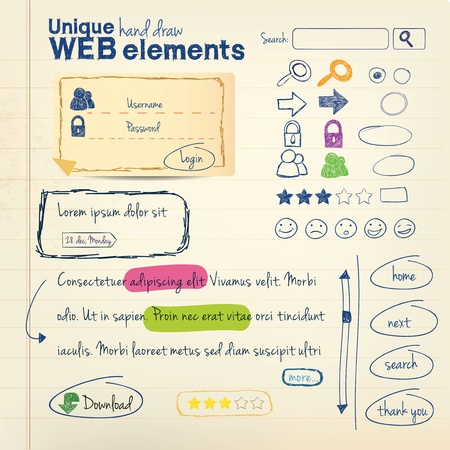 Unique hand draw
WEB elements
Search:
Username
Password
Login
Lorem ipsum dolor sit
28 dec, Monday
Consectetuer adipiscing elit Vivamus velit. Morbi
odio. Ut in sapien. Proin nec erat vitae orci tincidunt
iaculis. Morbi laoreet metus sed diam suscipit ultri
more...
Download
home
next
search
thank you